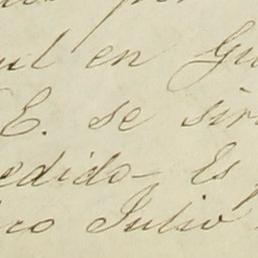 ul en Gu
E. se sir
edido - Es
ro Julio